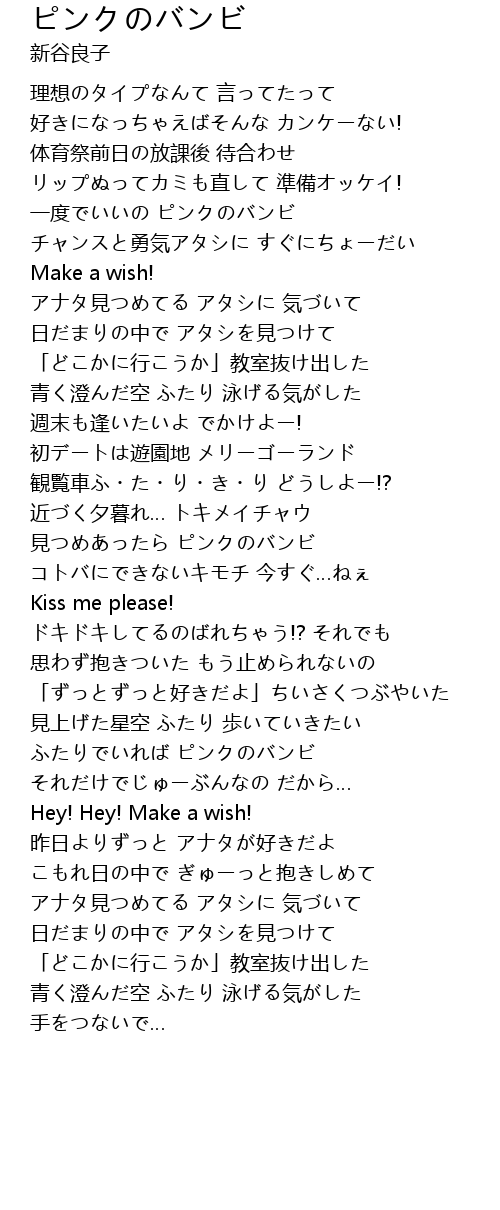 ピンクのバンビ
新谷良子
理想のタイプなんて 言ってたって
好きになっちゃえばそんな カンケーない!
体育祭前日の放課後 待合わせ
リップぬってカミも直して 準備オッケイ!
一度でいいの ピンクのバンビ
チャンスと勇気アタシに すぐにちょーだい
Make a wish!
アナタ見つめてる アタシに 気づいて
日だまりの中で アタシを見つけて
「どこかに行こうか」教室抜け出した
青く澄んだ空 ふたり 泳げる気がした
週末も逢いたいよ でかけよー!
初デートは遊園地 メリーゴーランド
観覧車ふ・た・り・き・り どうしよー!?
近づく夕暮れ... トキメイチャウ
見つめあったら ピンクのバンビ
コトバにできないキモチ 今すぐ...ねぇ
Kiss me please!
ドキドキしてるのばれちゃう!? それでも
思わず抱きついた もう止められないの
「ずっとずっと好きだよ」ちいさくつぶやいた
見上げた星空 ふたり 歩いていきたい
ふたりでいれば ピンクのバンビ
それだけでじゅーぶんなの だから...
Hey! Hey! Make a wish!
昨日よりずっと アナタが好きだよ
こもれ日の中で ぎゅーっと抱きしめて
アナタ見つめてる アタシに 気づいて
日だまりの中で アタシを見つけて
「どこかに行こうか」教室抜け出した
青く澄んだ空 ふたり 泳げる気がした
手をつないで...